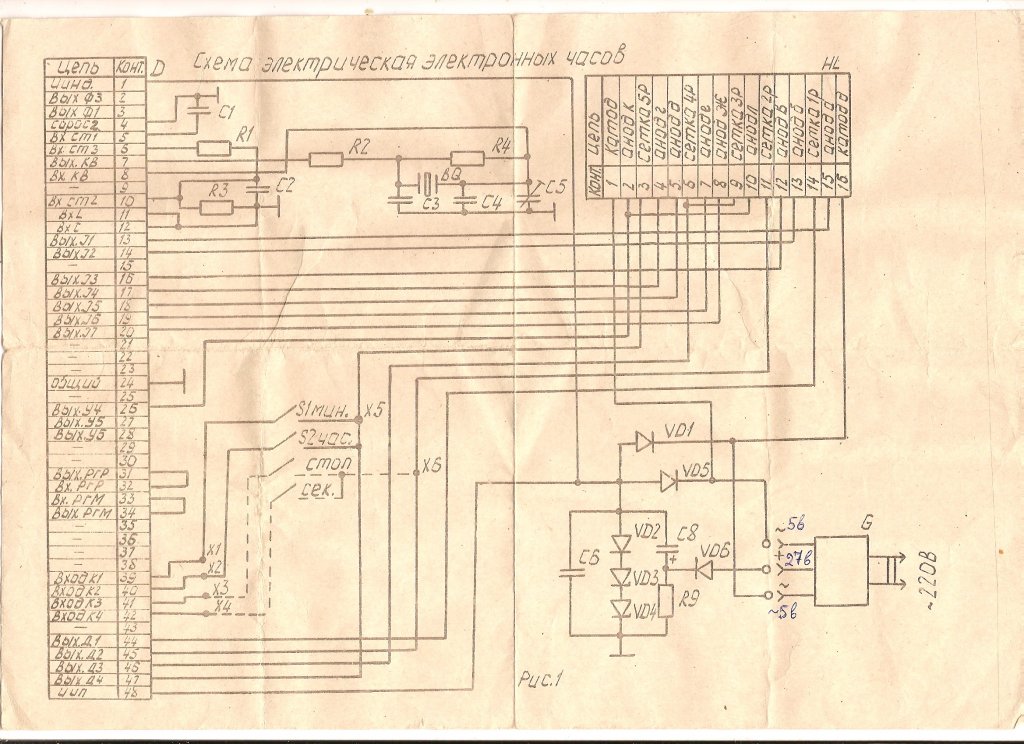 Схема электрическая электронных часов
Цепь Конт. D
Uинд. 1
Вых Ф3 2
Вых Ф1 3
сброс2 4
Вх ст1 5
Вх ст3 6
Вых. КВ 7
Вх. КВ 8
— 9
Вх ст2 10
Вх L 11
Вх С 12
Вых. J1 13
Вых. J2 14
— 15
Вых. J3 16
Вых. J4 17
Вых. J5 18
Вых. J6 19
Вых. J7 20
— 21
— 22
— 23
Общий 24
— 25
Вых. У4 26
Вых. У5 27
Вых У5 28
— 29
— 30
Вых. РгР 31
Вх. РгР 32
Вх. РгМ 33
Вых РгМ 34
— 35
— 36
— 37
— 38
Вход К1 39
Вход К2 40
Вход К3 41
Вход К4 42
— 43
Вых. Д1 44
Вых. Д2 45
Вых. Д3 46
Вых. Д4 47
Uип 48
C1
R1
R2
R4
BQ
C5
R3
C2
C3
C4
HL
Конт. Цепь
1 Катод
2 анод К
3 Сетка 5Р
4 анод г
5 анод д
6 Сетка 4Р
7 анод е
8 анод Ж
9 сетка 3Р
10 анод Л
11 Сетка 2Р
12 анод в
13 анод б
14 Сетка 1Р
15 анод а
16 катод
S1 мин. X5
S2 час.
стоп X6
сек.
X1
X2
X3
X4
VD1
VD5
VD2
C8
+
C6
VD3
VD6
VD4
R9
~5в
+
27в
~
~5в
G
~220В
Рис.1